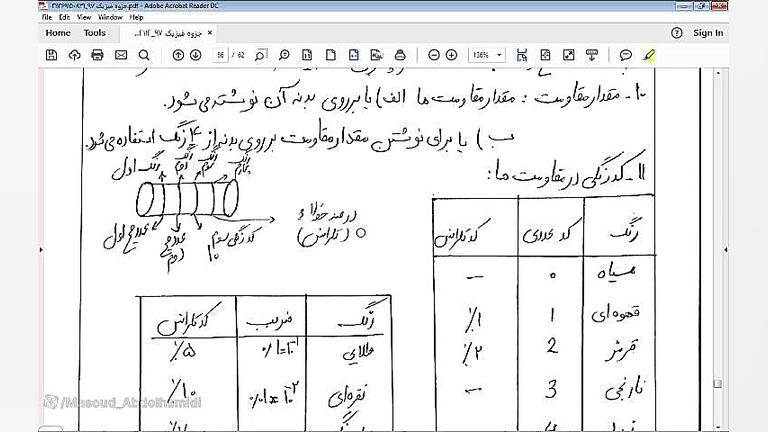 جزوه فیزیک ۹۷_۳۱۲۶۹۱۵۰۸۳۱.pdf - Adobe Acrobat Reader DC
File Edit View Window Help
Home Tools
جزوه فیزیک ۹۷_۳۱۲... ×
Sign In
56 / 62
136%
۱۰- مقدار مقاومت : مقدار مقاومت ها الف) یا بر روی بدنه آن نوشته می شود.
ب) یا برای نوشتن مقدار مقاومت بر روی بدنه از ۴ رنگ استفاده می شود.
۱۱- کد رنگی در مقاومت ها:
رنگ اول
رنگ دوم
رنگ سوم
عدد صحیح اول
عدد صحیح دوم
کد رنگی سوم
۱۰
درصد خطا
(تلرانس)
رنگ کد عددی کد تلرانس
سیاه ۰ -
قهوه ای 1 ۱٪
قرمز 2 ۲٪
نارنجی 3 -
رنگ ضریب کد تلرانس
طلایی ۰/۱=۱۰⁻¹ ۵٪
نقره ای ۰/۰۱=۱۰⁻² ۱۰٪
/Masoud_Abdolhamidi